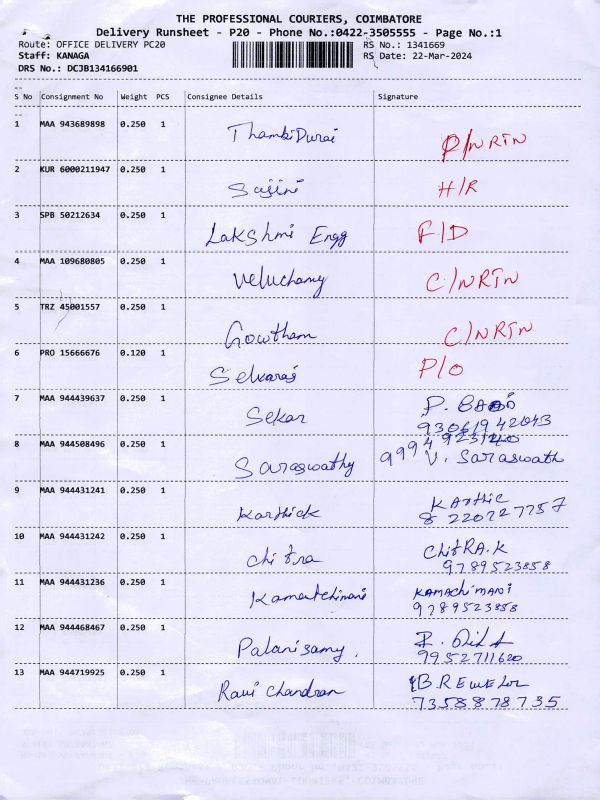 THE PROFESSIONAL COURIERS, COIMBATORE
Delivery Runsheet - P20 - Phone No.:0422-3505555 - Page No.:1
Route: OFFICE DELIVERY PC20 RS No.: 1341669
Staff: KANAGA RS Date: 22-Mar-2024
DRS No.: DCJB134166901
S No Consignment No Weight PCS Consignee Details Signature
1 MAA 943689898 0.250 1 ThambiDurai D/NRTN
2 KUR 6000211947 0.250 1 Sajini H/R
3 SPB 50212634 0.250 1 Lakshmi Engg F/D
4 MAA 109680805 0.250 1 Veluchamy C/NRTN
5 TRZ 45001557 0.250 1 Gowtham C/NRTN
6 PRO 15666676 0.120 1 Selvaraj P/O
7 MAA 944439637 0.250 1 Sekar P.
93061942043
8 MAA 944508496 0.250 1 Saraswathy 9994923140
V. Saraswath
9 MAA 944431241 0.250 1 Karthick Karthic
8220727757
10 MAA 944431242 0.250 1 Chitra ChitRA.K
9789523858
11 MAA 944431236 0.250 1 Kamatchimani KAMACHiMANi
9789523858
12 MAA 944468467 0.250 1 Palanisamy.
9952711620
13 MAA 944719925 0.250 1 Ravi Chandran
7358878735